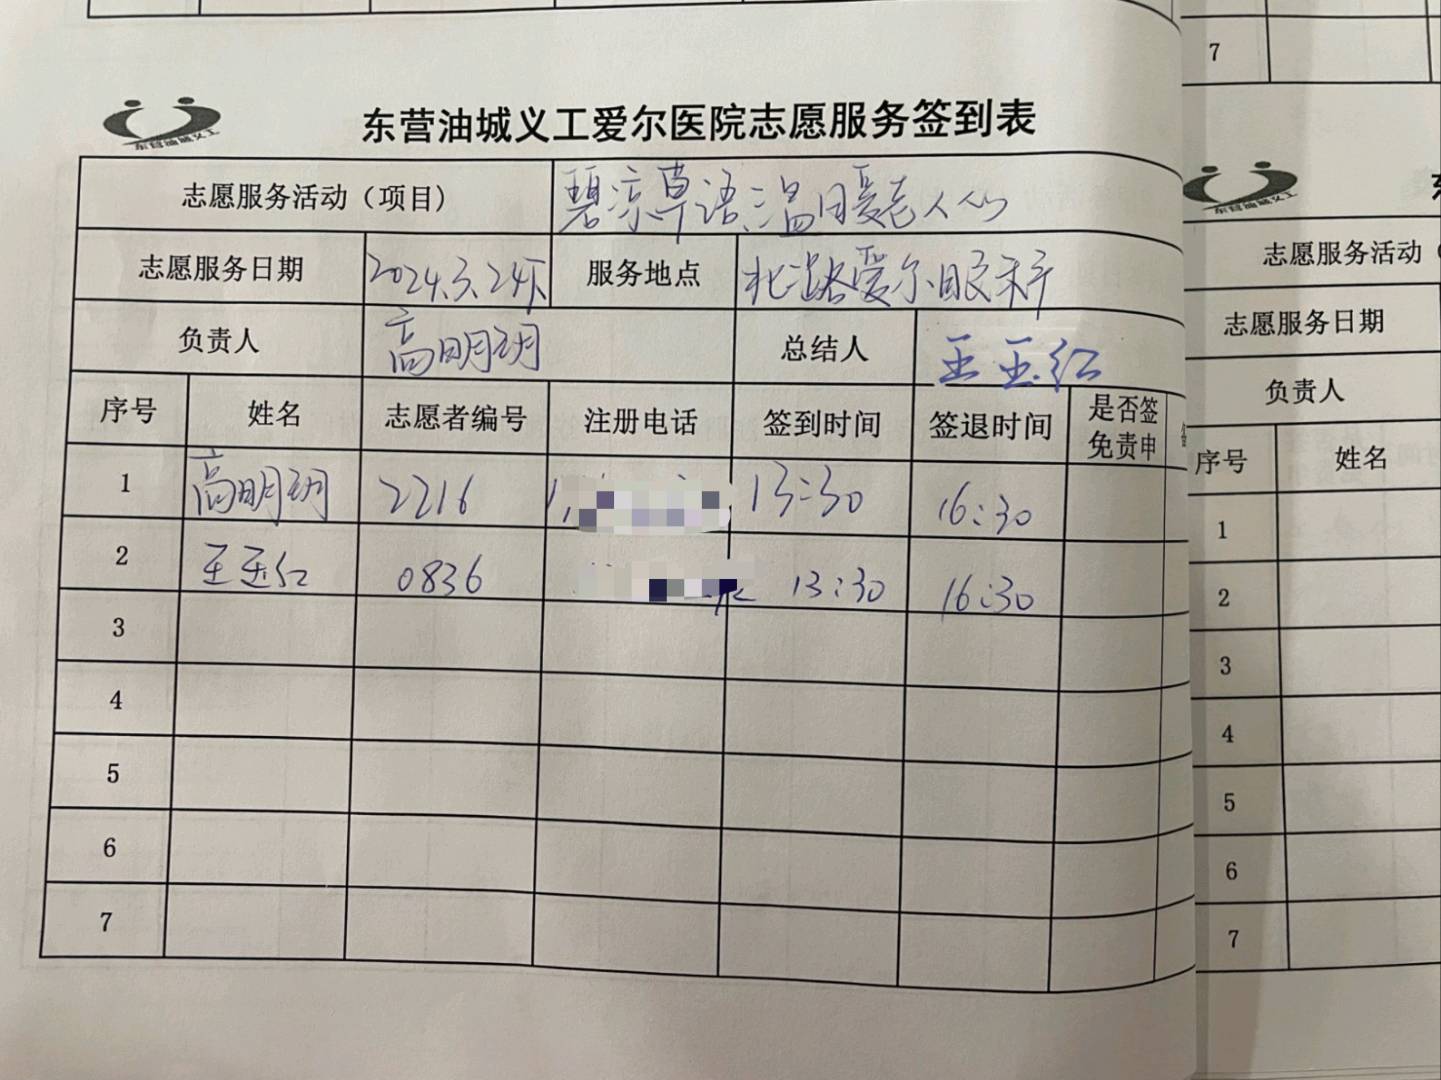 东营油城义工
东营油城义工爱尔医院志愿服务签到表
志愿服务活动（项目） 碧凉草语、温暖老人心
志愿服务日期 2024.3.24下 服务地点 北二路爱尔眼科
负责人 高明玥 总结人 王玉红
序号 姓名 志愿者编号 注册电话 签到时间 签退时间 是否签免责申
1 高明玥 2216 13:30 16:30
2 王玉红 0836 13:30 16:30
3
4
5
6
7
7
东营油城义工
志愿服务活动（
志愿服务日期
负责人
序号 姓名
1
2
3
4
5
6
7